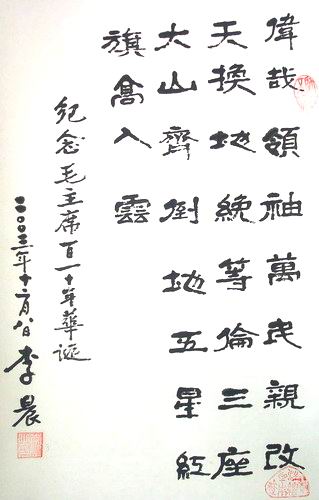 偉哉領袖萬民親改
天換地絶等倫三座
大山齊倒地五星紅
旗高入雲
紀念毛主席百一十年華誕
二〇〇三年十二月八日 李晨